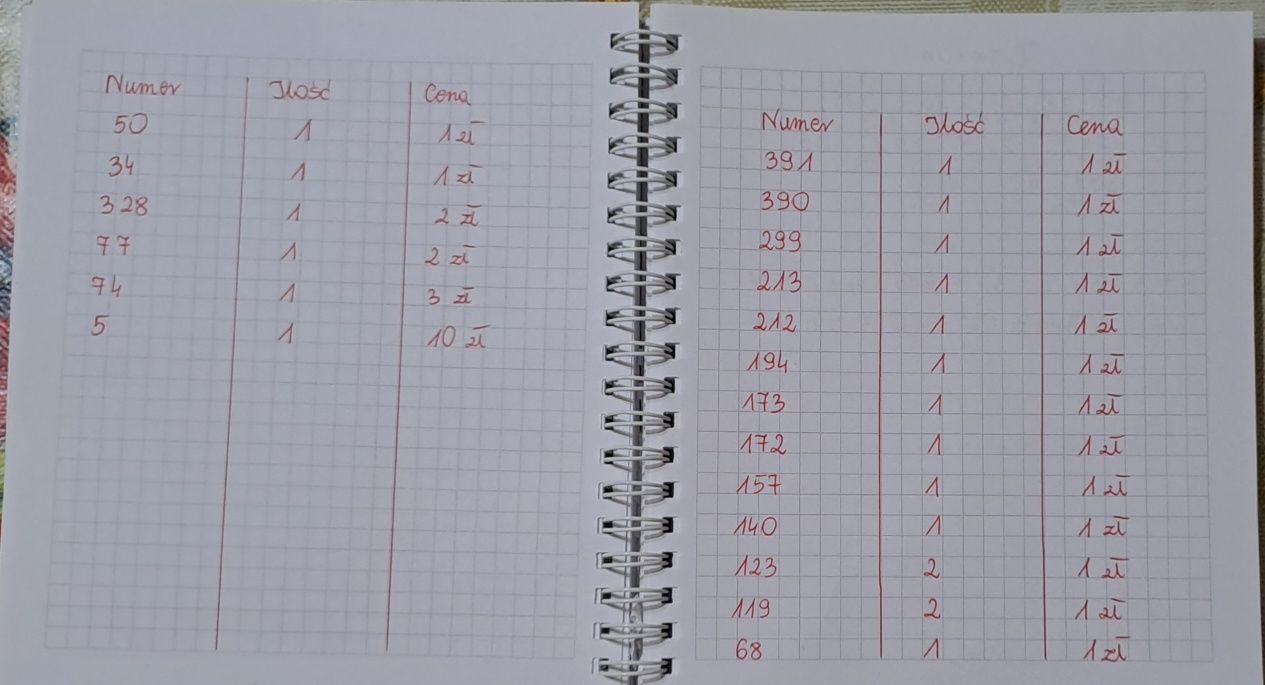 Numer Ilość Cena
50 1 1 zł
34 1 1 zł
328 1 2 zł
77 1 2 zł
74 1 3 zł
5 1 10 zł
Numer Ilość Cena
391 1 1 zł
390 1 1 zł
299 1 1 zł
213 1 1 zł
212 1 1 zł
194 1 1 zł
173 1 1 zł
172 1 1 zł
157 1 1 zł
140 1 1 zł
123 2 1 zł
119 2 1 zł
68 1 1 zł